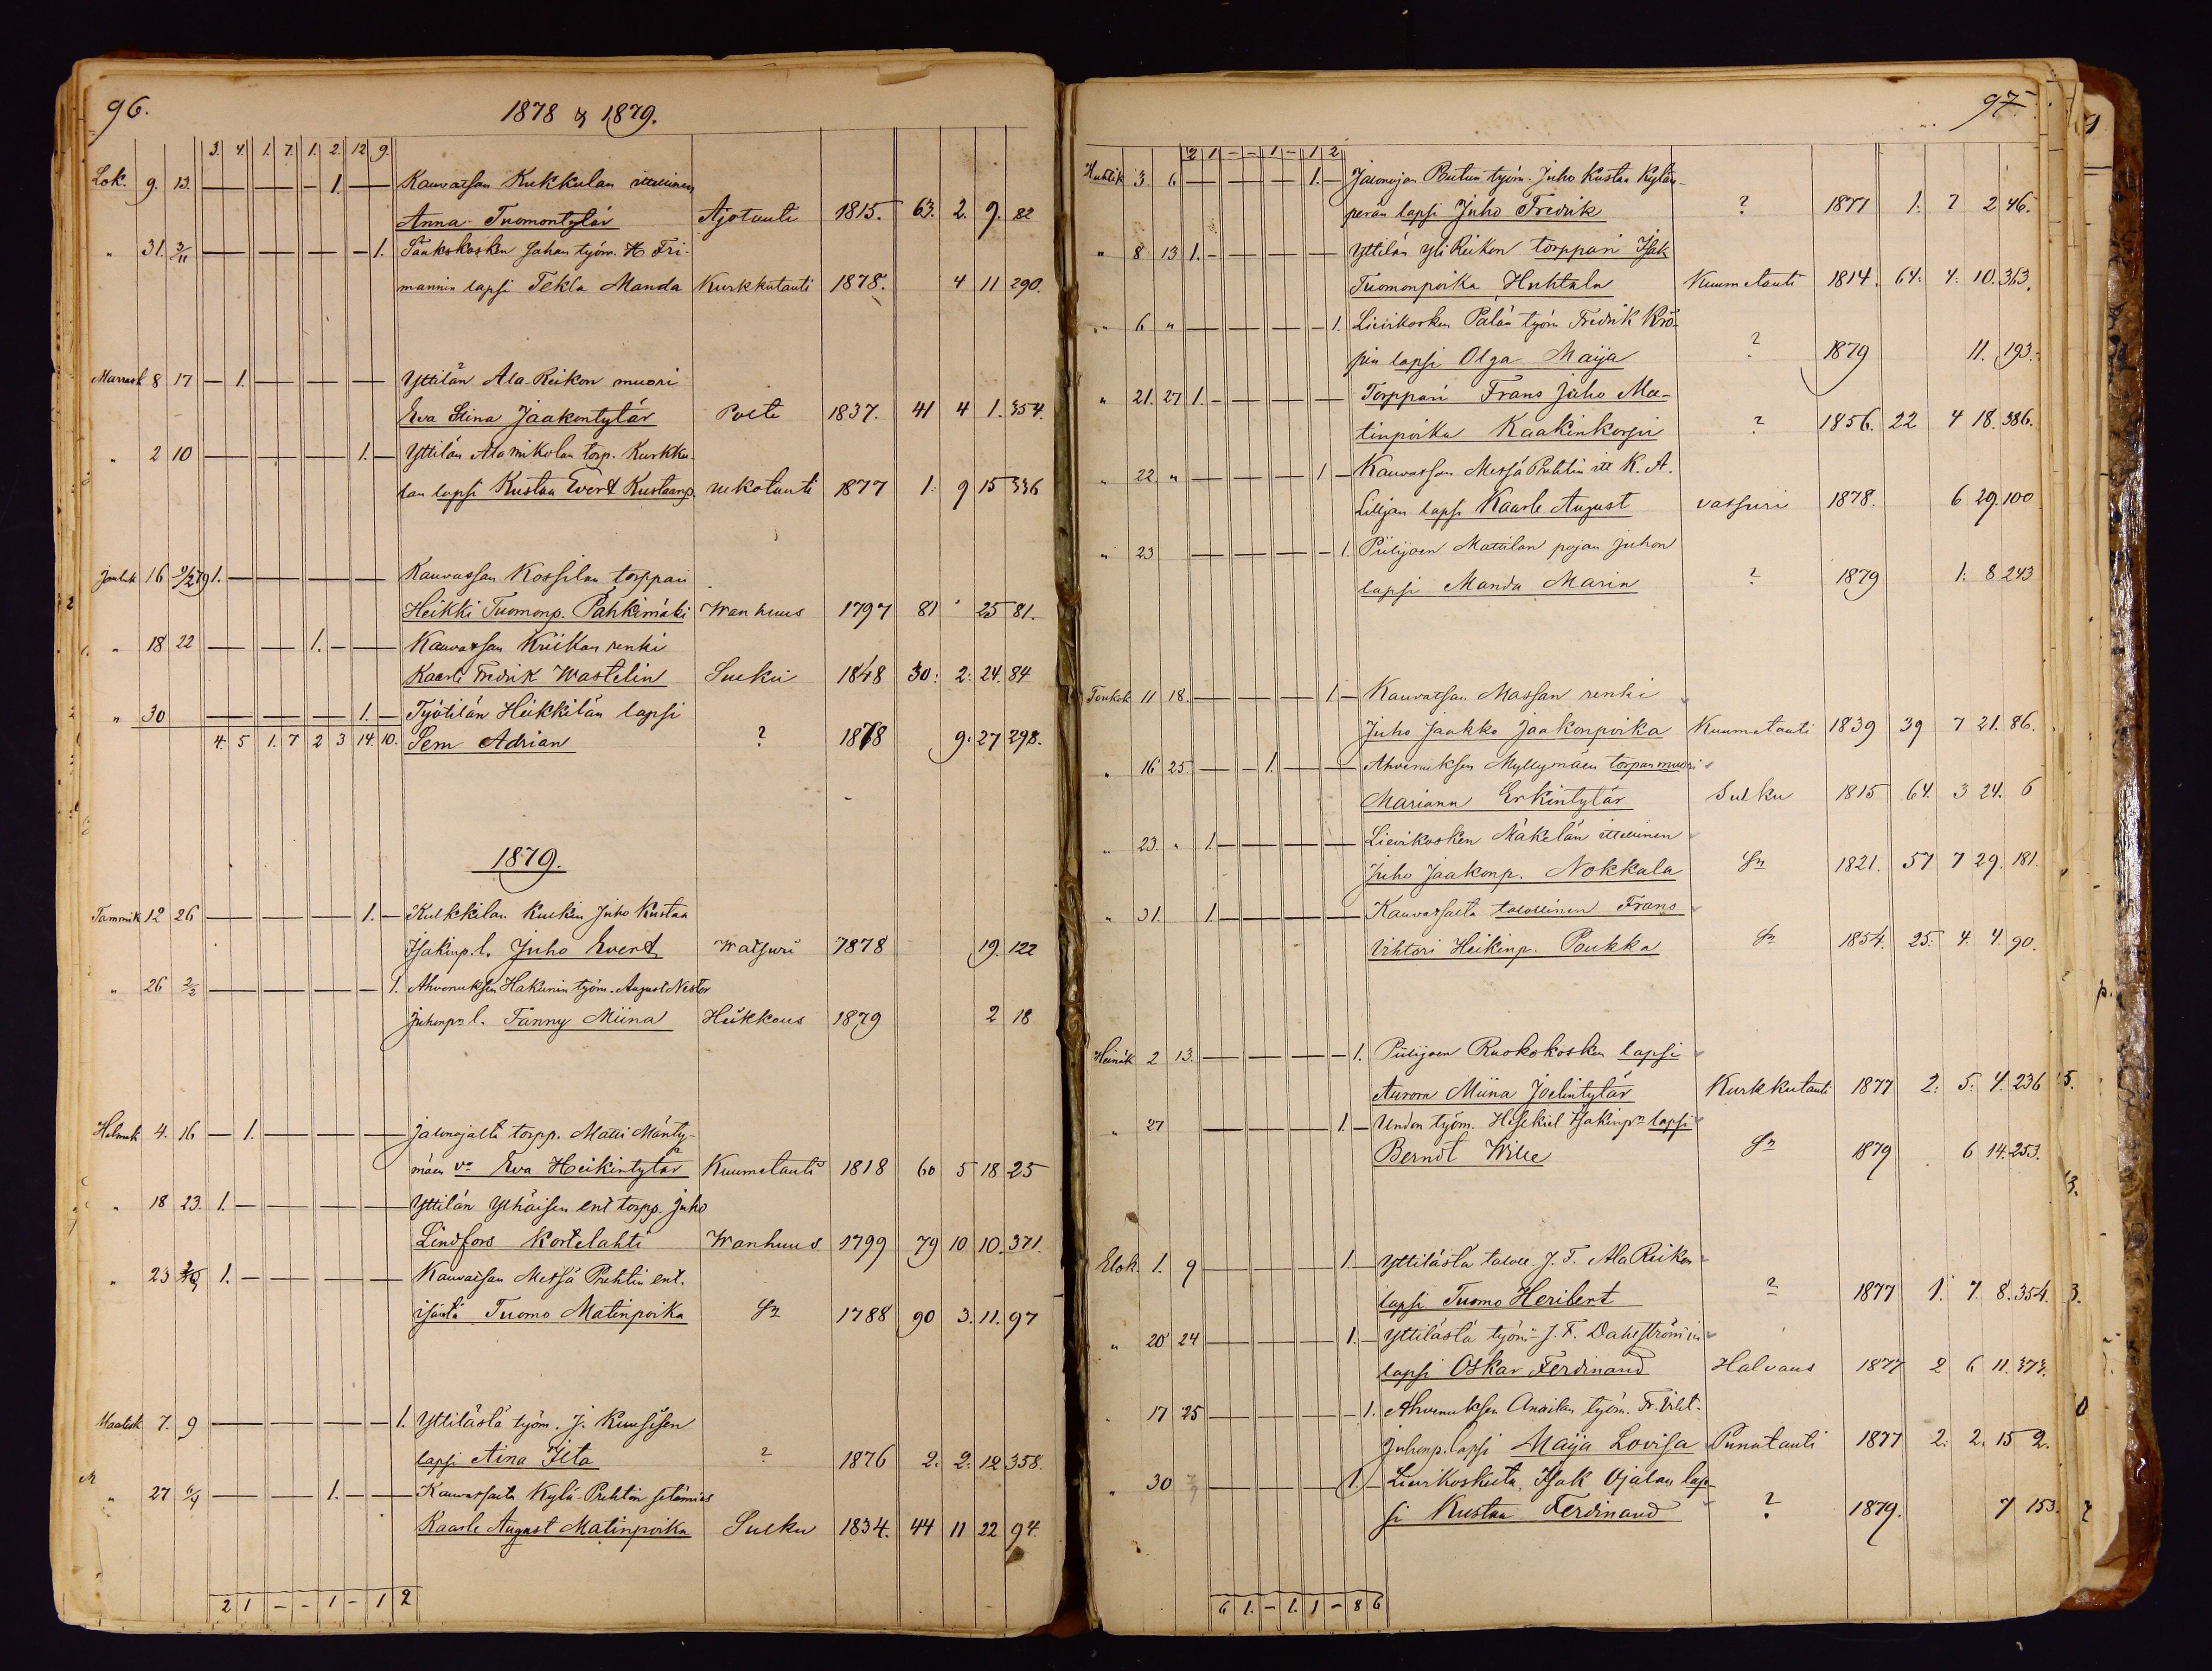 96.
1878 & 1879.
3. 4. 1. 7. 1. 2. 12 9.
Lok. 9. 13. — — — - 1. — Kauvatsan Kukkulan itsellinen
Anna Tuomontytär Ajotauti 1815. 63. 2. 9. 82
" 31. 3/11 — — — — - 1. Sääkskosken sahan työm. H Fri-
mannin lapsi Tekla Manda Kurkkutauti 1878. 4 11 290.
Marrask 8 17 — 1. — — — Yttilän Ala-Reikon muori
Eva Stina Jaakontytär Polte 1837. 41 4 1. 354.
" 2 10 — — — — 1. — Yttilän Alamikolan torp. Kurkku-
lan lapsi Kustaa Evert Kustaanp. rukotauti 1877 1: 9 15 336
Jouluk 16 9/2 79 1. — — — — Kauvatsan Kossilan torppari
Heikki Tuomonp. Pähkimäki Wanhuus 1797 81 25 81.
" 18 22 — — — 1. - — Kauvatsan Kriikan renki
Kaarle Fredrik Wastelin Sulku 1848 30: 2: 24. 84
" 30 — — — — 1. — Työtilän Heikkilän lapsi
4. 5 1. 7 2 3 14. 10. Sem Adrian ? 1878 9. 27 298.
1879.
Tammik 12 26 — — — — 1. — Kulkkilan Kulkin Juho Kustaa
Isakinp. l. Juho Evert Watsuri 1878 19. 122
" 26 2/2 — — — — 1. Ahvenuksen Hakunin työm. August Nestor
Juhonpn l. Fanny Miina Hiukkous 1879 2 18
Helmik 4. 16 — 1. — — — Jalonojalta torpp. Matti Mänty-
mäen va Eva Heikintytär Kuumetauti 1818 60 5 18 25
" 18 23. 1. — — — — Yttilän Ylhäisen ent torpp. Juho
Lindfors Kortelahti Wanhuus 1799 79 10 10. 371.
" 23 1. — — — — Kauvatsan Metsä Prehtin ent.
isäntä Tuomo Matinpoika Sn 1788 90 3. 11. 97
Maalisk 7. 9 — — — — 1. Yttilästä työm. J. Kuusisen
lapsi Aina Ita ? 1876 2. 2. 12 358.
" 27 6/4 — — — 1. — Kauvatsalta Kylä-Prehtin setämies
Kaarle August Matinpoika Sulku 1834. 44 11 22 94.
2 1 - - 1 - 1 2
97.
2 1 - - 1 - 1 2
Huhtik 3 6 — — — — 1. — Jalonojan Outun työm. Juho Kustaa Kylän-
perän lapsi Juho Fredrik ? 1877 1: 7 2 46.
" 8 13 1. - — — — Yttilän Yli Reikon torppari Isak
Tuomonpoika Huhtala Kuumetauti 1814. 64: 4: 10. 363.
" 6 " — — — — 1. Lievikosken Palän työm Fredrik Krö-
pin lapsi Olga Maija ? 1879 11. 193.
" 21. 27 1. - — — — Torppari Frans Juho Ma-
tinpoika Kaakinkorpi ? 1856. 22 4 18. 386.
" 22 " — — — — 1 — Kauvatsan Metsä Prehtin itl K. A.
Liljan lapsi Kaarle August vatsuri 1878. 6 29. 100
" 23 — — — — 1. Piilijoen Mattilan pojan Juhon
lapsi Manda Maria ? 1879 1. 8 243
Toukok 11 18. — — — — 1. — Kauvatsan Massan renki
Juho Jaakko Jaakonpoika Kuumetauti 1839 39 7 21. 86.
" 16 25. — — 1. — — Ahvenuksen Myllymäen torpan muori
Mariana Erkintytär Sulku 1815 64. 3 24. 6
" 23. " 1. — — — — Lievikosken Mäkelän itsellinen
Juho Jaakonp. Nokkala Sn 1821. 57 7 29. 181.
" 31. 1. — — — — Kauvatsalta talollinen Frans
Vihtori Heikinp. Poukka Sn 1854. 25. 4. 4. 90.
Heinäk 2 13. — — — — 1. Piilijoen Ruokokosken lapsi
Aurora Miina Joelintytär Kurkkutauti 1877 2: 5: 4. 236
" 27 — — — — 1. — Undon työm. Hesekiel Isakinpn lapsi
Berndt Wille Sn 1879 6 14. 253.
Elok. 1. 9 — — — — 1. — Yttilästä taloll. J. F. Ala Reikon
lapsi Tuomo Heribert ? 1877 1. 7. 8. 354.
" 20 24 — — — — 1. — Yttilästä työm- J. F. Dahlströmin
lapsi Oskar Ferdinand Halvaus 1877 2 6 11. 373.
" 17 25 — — — — - 1. Ahvenuksen Anoilan työm. Fr. Vilt.
Juhonp. lapsi Maija Lovisa Punatauti 1877 2: 2. 15 2.
" 30 — — — — 1. — Lievikoskelta Isak Ojalan lap-
si Kustaa Ferdinand ? 1879. 7 153.
6 1. - 1. 1 - 8 6